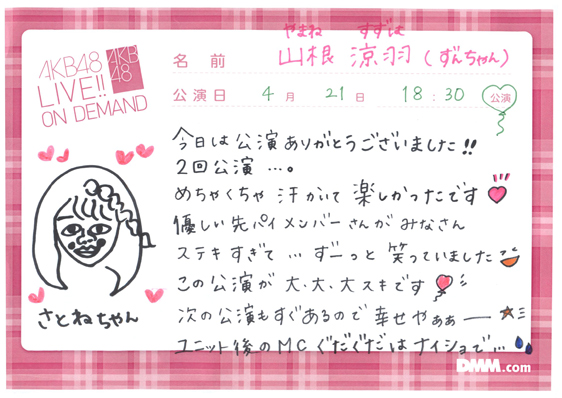 AKB48
LIVE!!
ON DEMAND
AKB
48
やまね すずは
名前 山根 涼羽 (ずんちゃん)
公演日 4月 21日 18:30 公演
今日は公演ありがとうございました!!
2回公演…。
めちゃくちゃ汗かいて楽しかったです
優しい先パイメンバーさんがみなさん
ステキすぎて…ずーっと笑っていました
この公演が大、大、大スキです
次の公演もすぐあるので幸せやぁぁー
ユニット後のMCぐだぐだはナイショで…
さとねちゃん
DMM.com